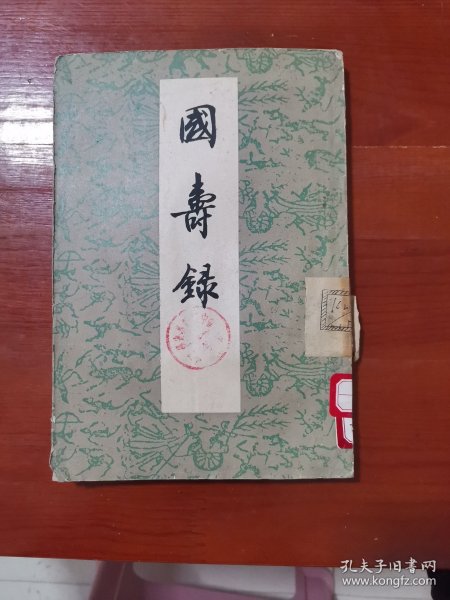 國
壽
録
孔夫子旧书网
www.kongfz.com